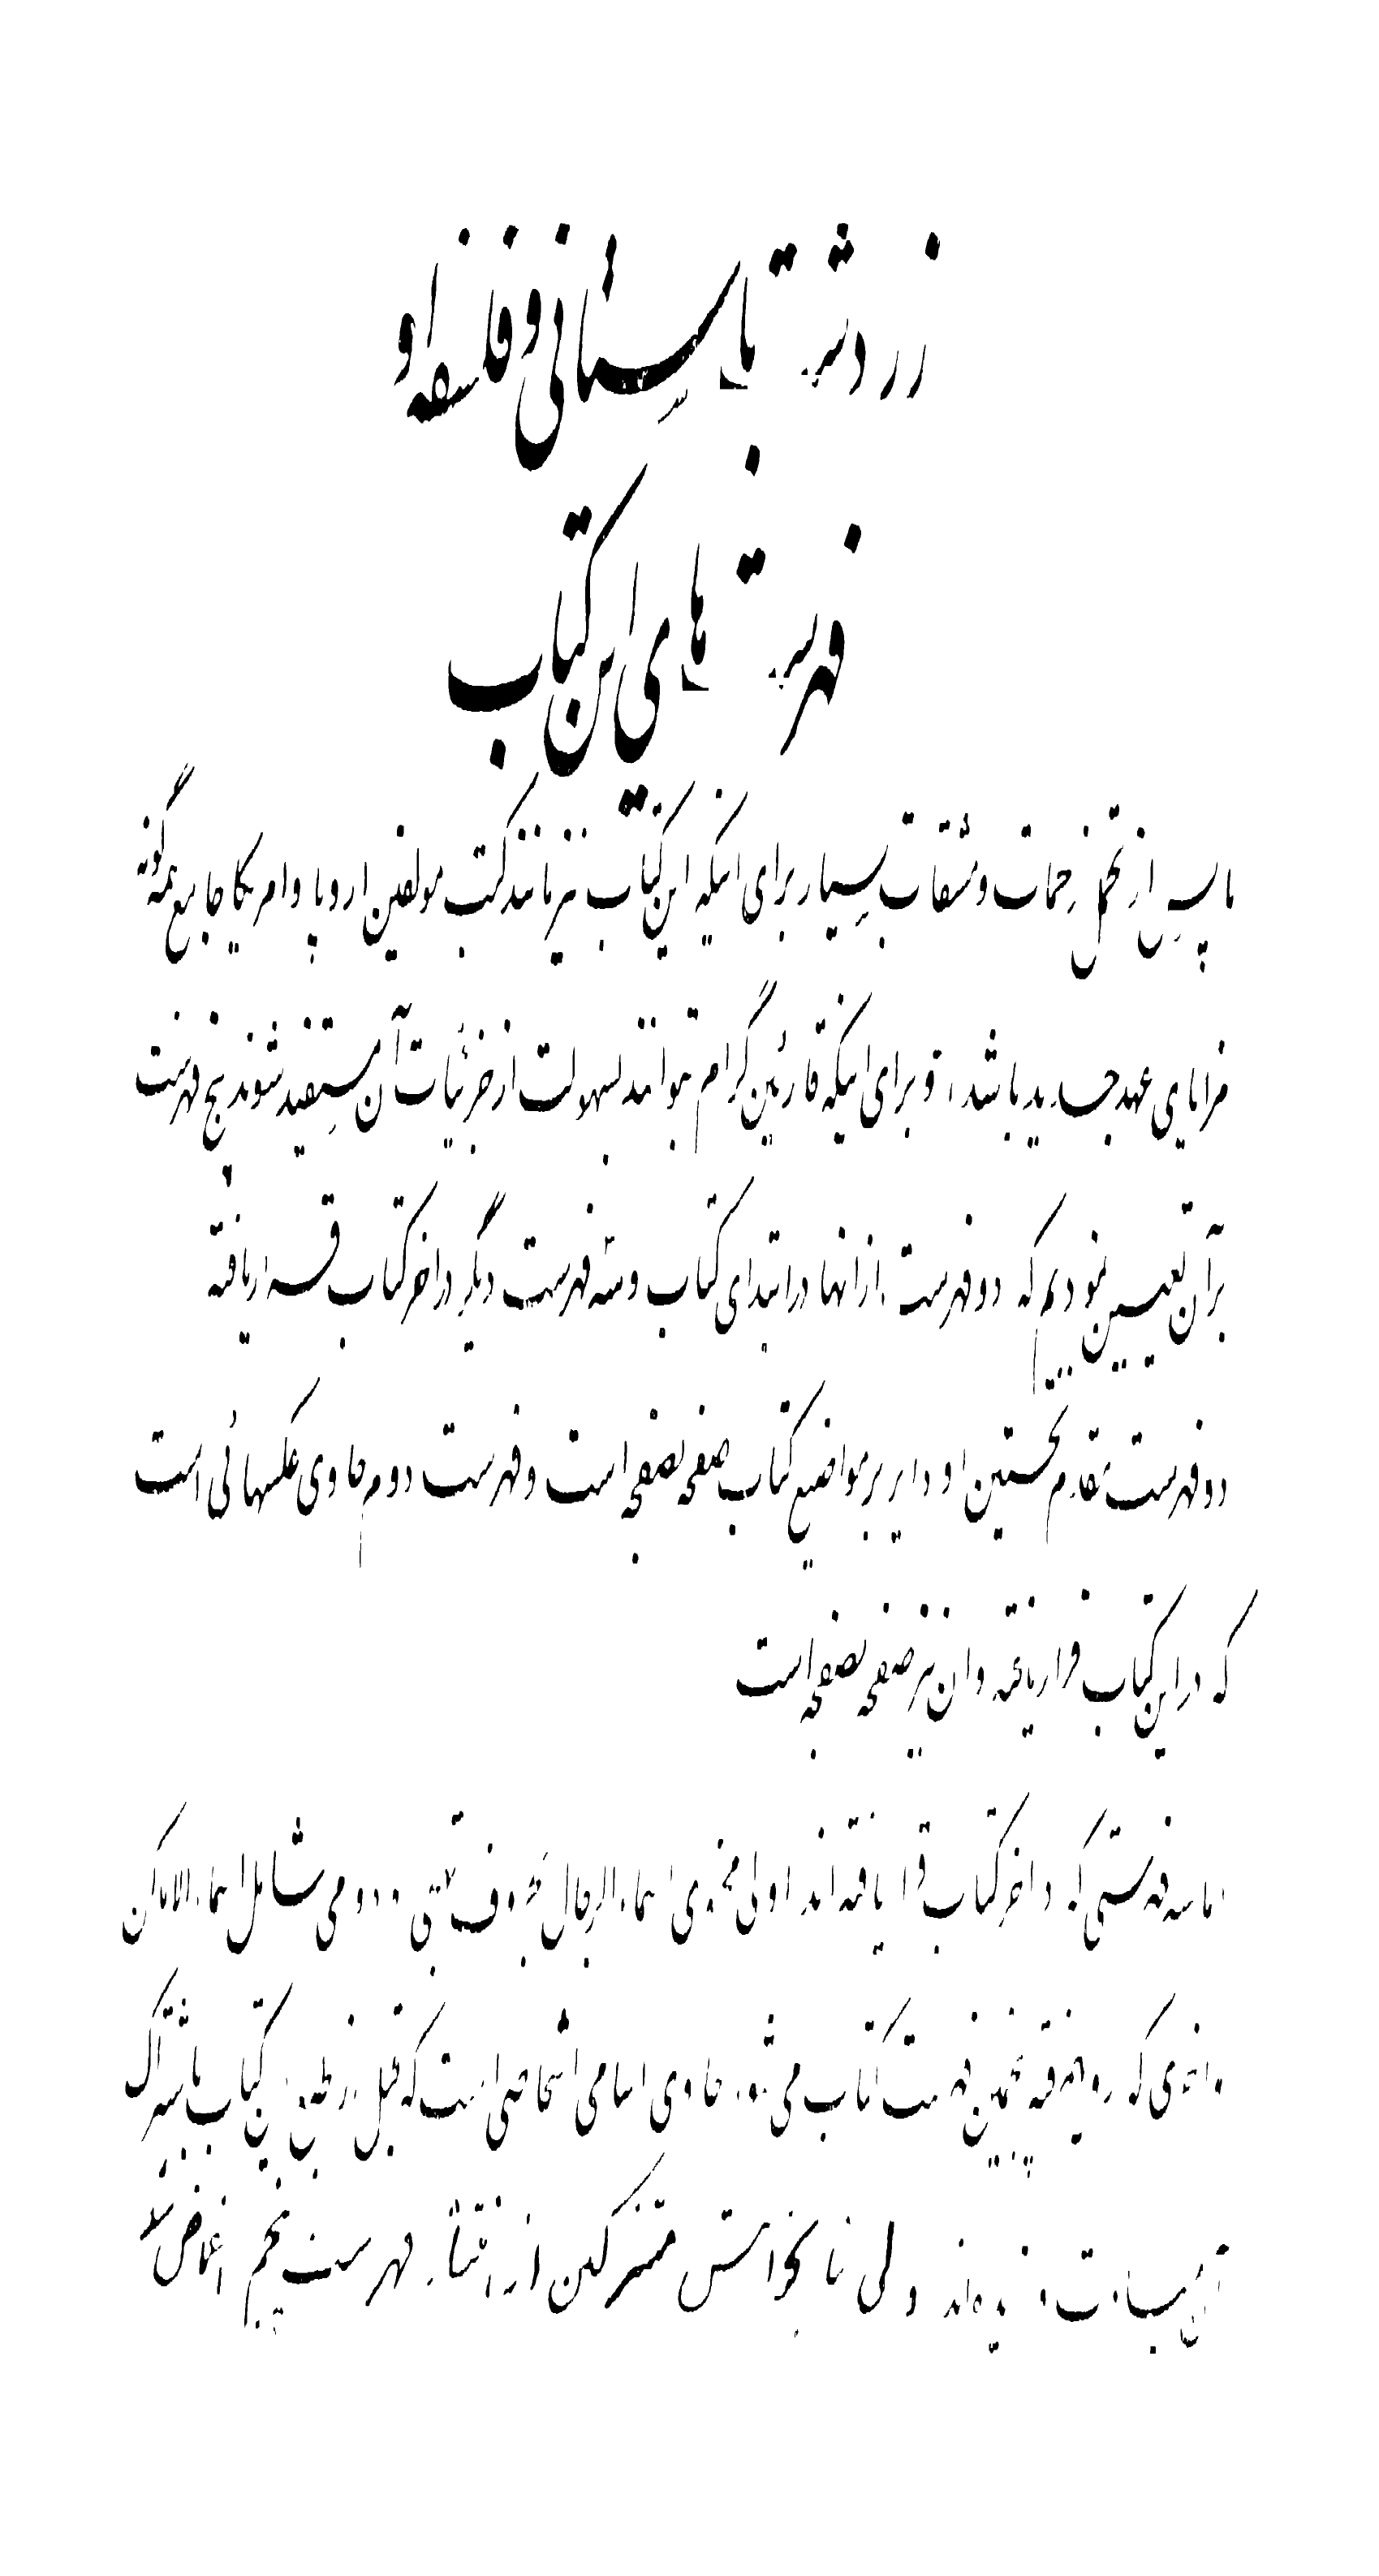 زردشت باستانی و فلسفه او
فهرست های این کتاب
ما پس از تحمل زحمات و مشقات بسیار برای اینکه این کتاب نیز مانند کتب مولفین اروپا و امریکا جامع همه گونه
مزایای عهد جدید باشد، و برای اینکه قارئین گرام بتوانند بسهولت از جزئیات آن مستفید شوند پنج فهرست
برآن تعیین نمودیم که دو فهرست ازانها در ابتدای کتاب و سه فهرست دیگر در آخر کتاب قرار یافته
دو فهرست مقدم نخستین او دایر بر مواضیع کتاب صفحه بصفحه است و فهرست دوم حاوی عکسهائی است
که در این کتاب قرار یافته و ان نیز صفحه بصفحه است
اما سه فهرستی که در آخر کتاب قرار یافته اند اولی محتوی اسماء الرجال بحروف تهجی و دومی شامل اسماء الاماکن
و اخری که رویهمرفته پنجمین فهرست کتاب می شود حاوی اسامی اشخاصی است که قبل از طبع این کتاب باشتراک
آن مبادرت ورزیده اند ولی نا بخواهش مشترکین از انتشار فهرست پنجم اغماض شد